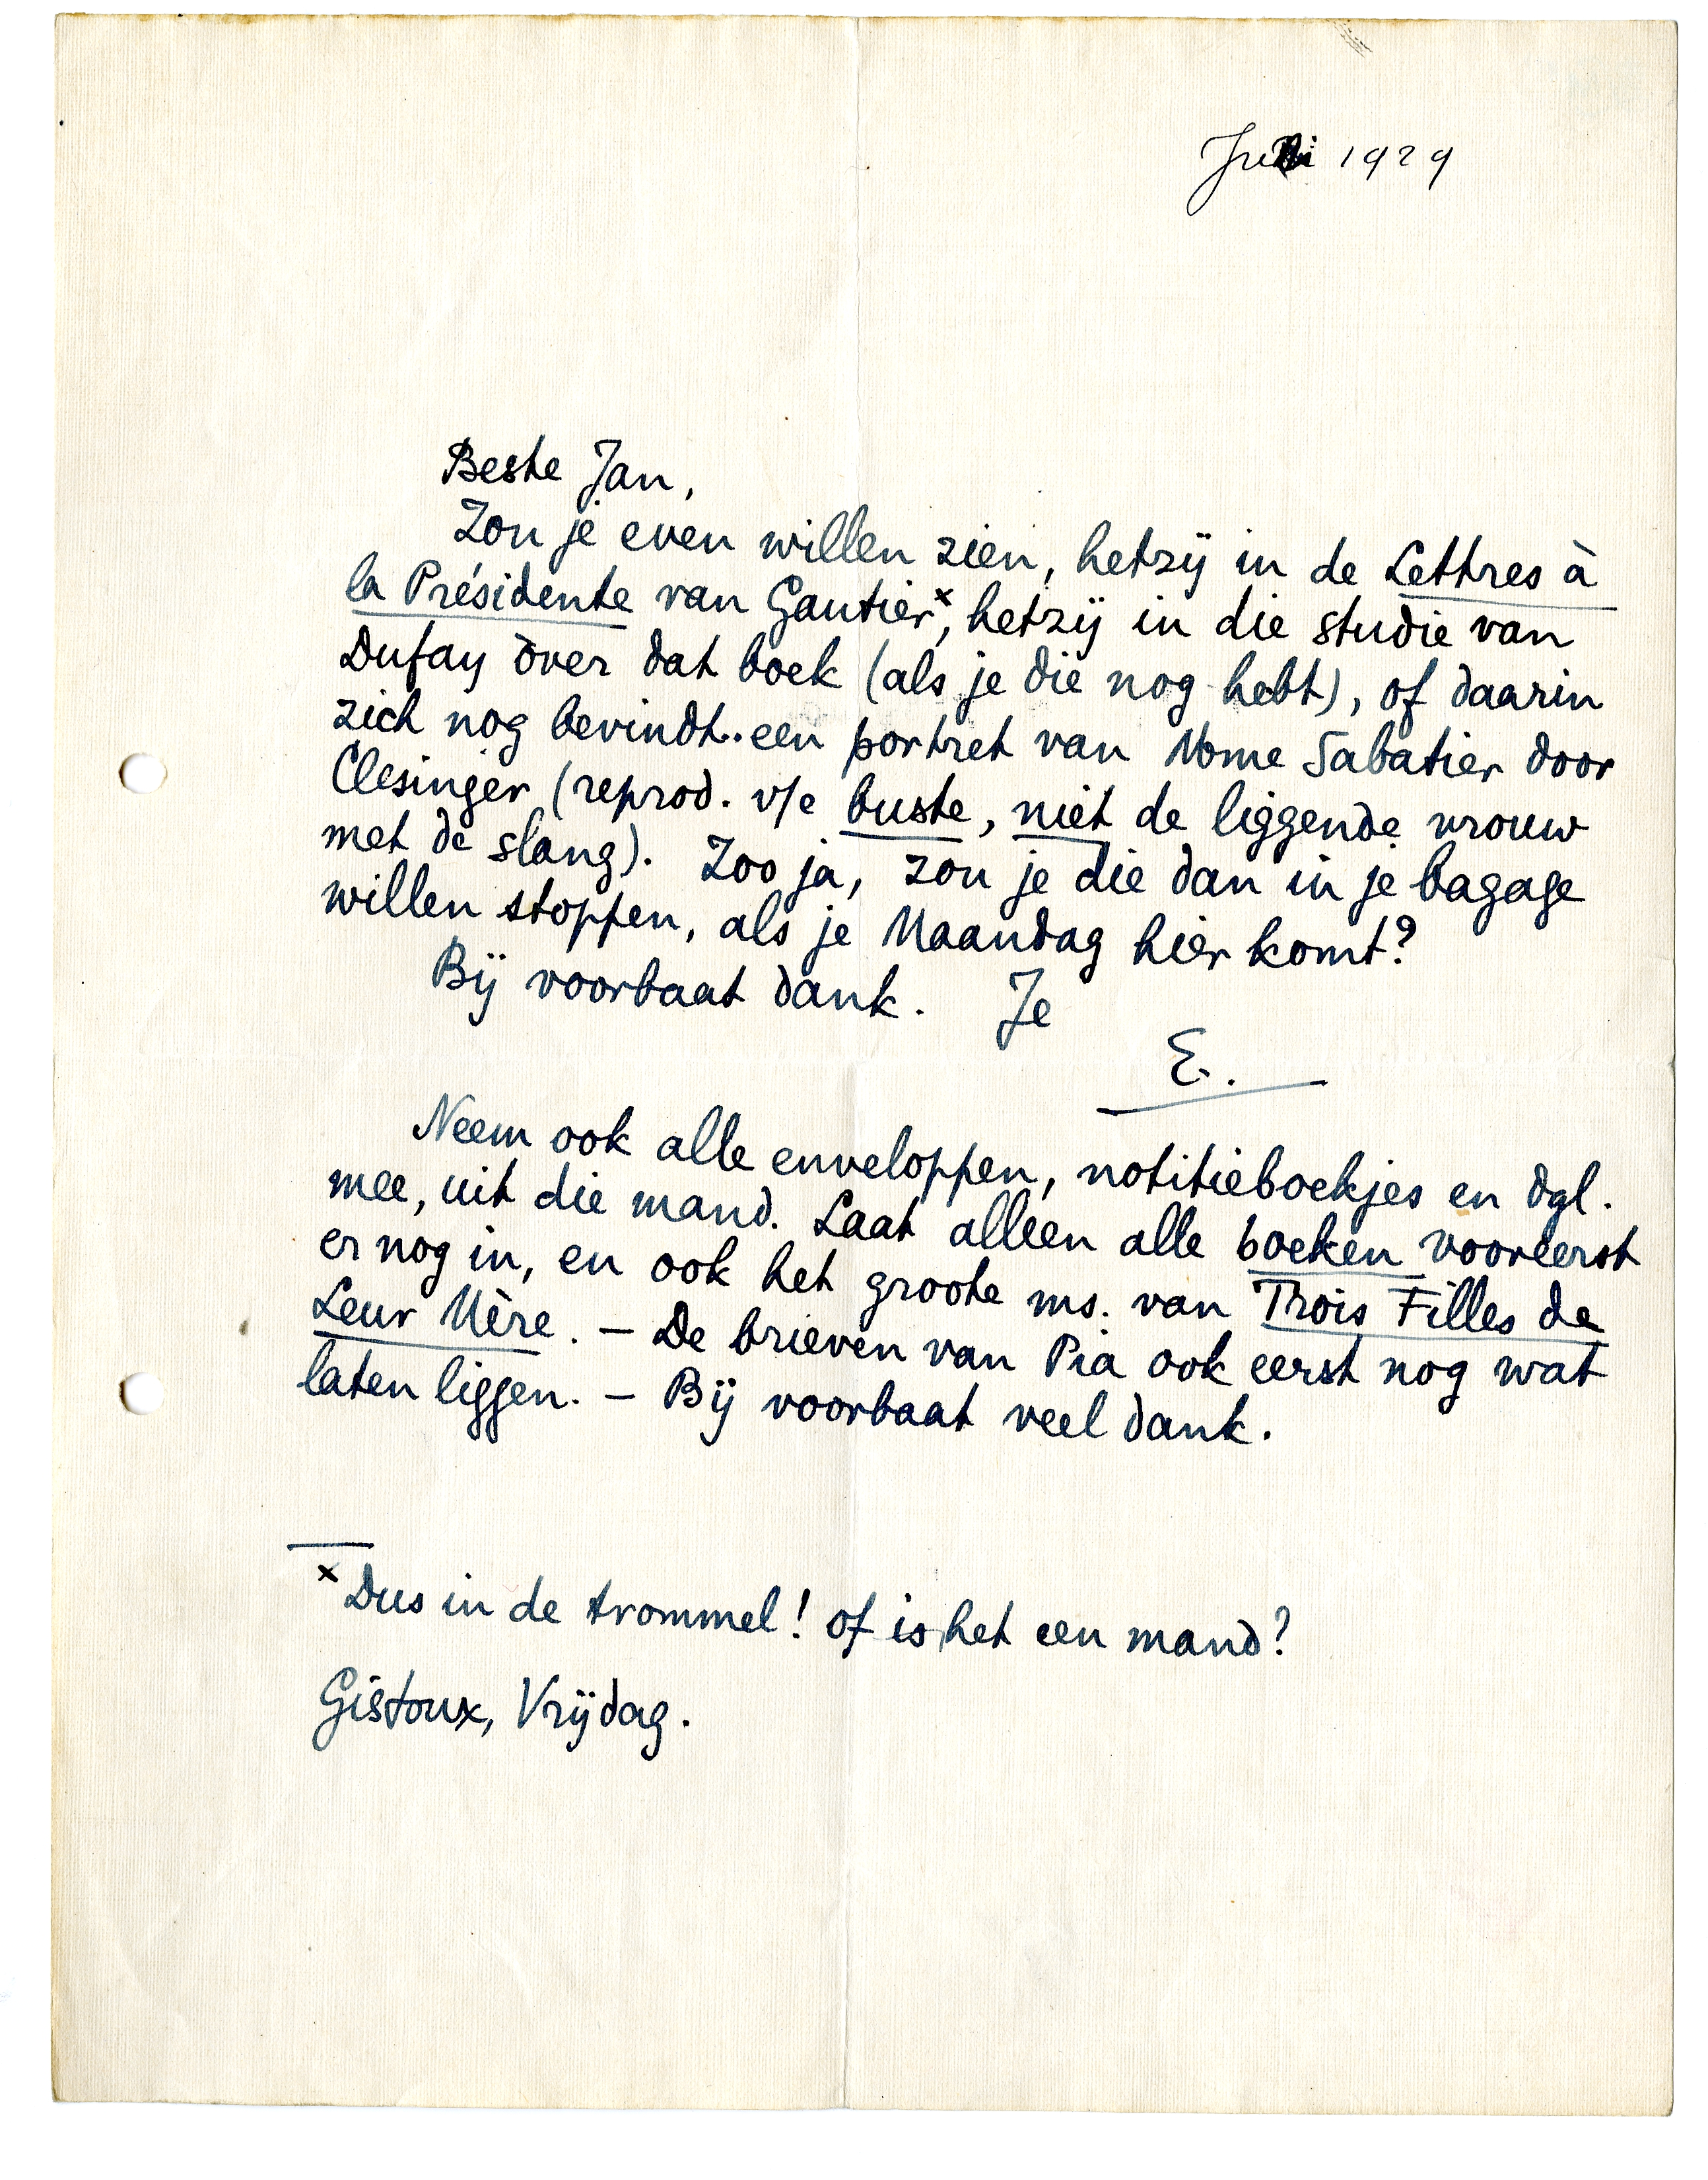 1929
Beste Jan,
Zou je even willen zien, hetzij in de Lettres à
la Présidente van Gautier×, hetzij in die studie van
Dufay over dat boek (als je die nog hebt), of daarin
zich nog bevindt.. een portret van Mme Sabatier door
Clesinger (reprod. v/e buste, niet de liggende vrouw
met de slang). Zoo ja, zou je die dan in je bagage
willen stoppen, als je Maandag hier komt?
Bij voorbaat dank. Je
E.
Neem ook alle enveloppen, notitieboekjes en dgl.
mee, uit die mand. Laat alleen alle boeken vooreerst
er nog in, en ook het groote ms. van Trois Filles de
Leur Mère. – De brieven van Pia ook eerst nog wat
laten liggen. – Bij voorbaat veel dank.
× Dus in de trommel! of is het een mand?
Gistoux, Vrijdag.